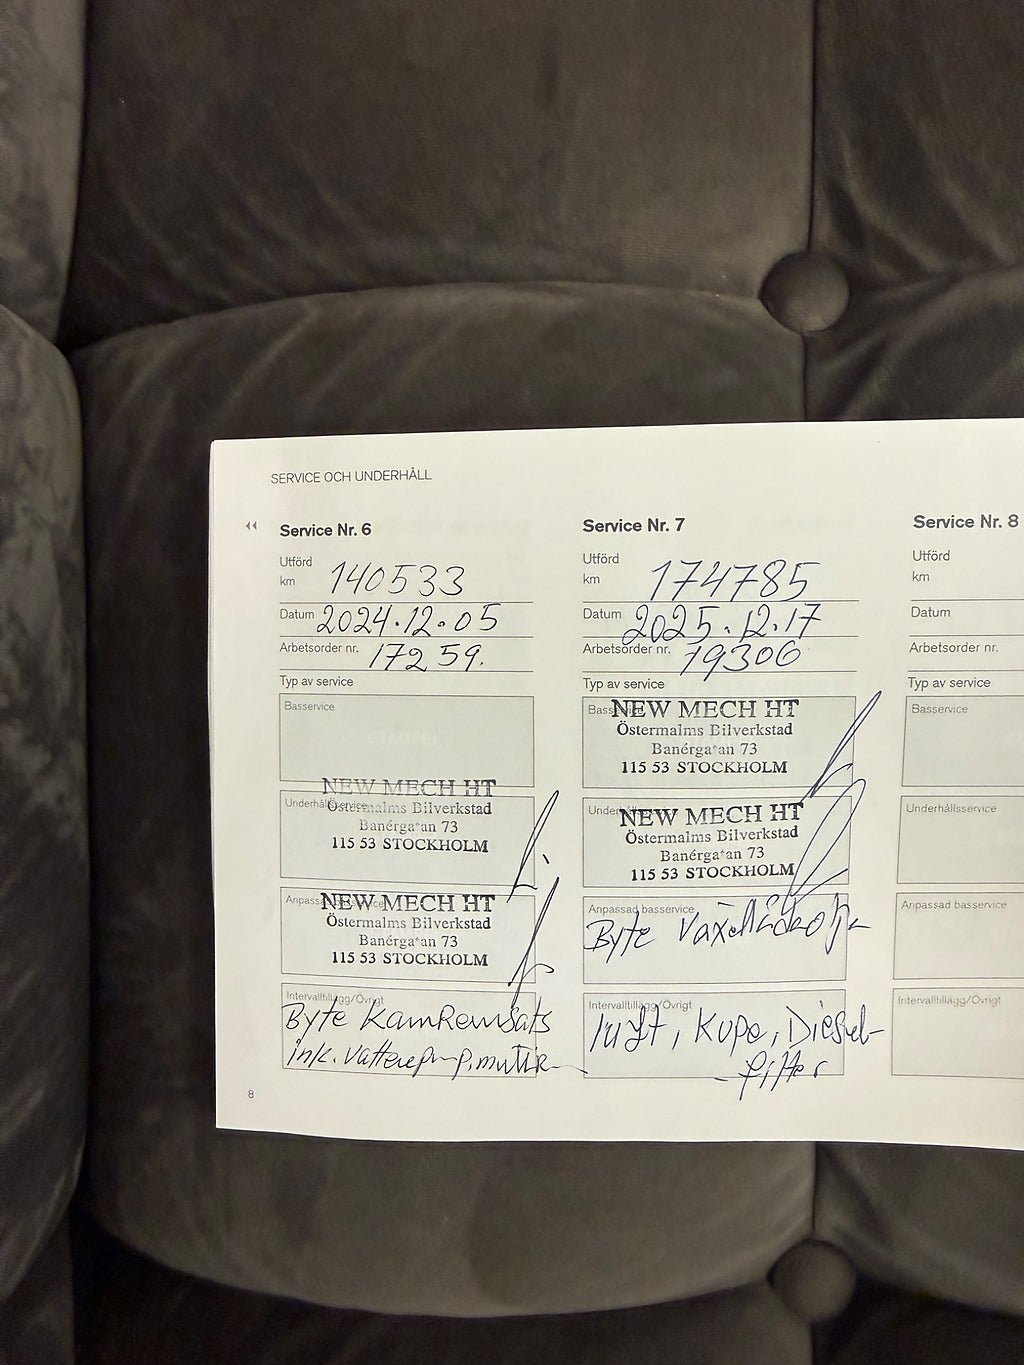 SERVICE OCH UNDERHÅLL
Service Nr. 6
Utförd
km 140533
Datum 2024.12.05
Arbetsorder nr. 17259.
Typ av service
Basservice
Underhållsservice
NEW MECH HT
Östermalms Bilverkstad
Banérga*an 73
115 53 STOCKHOLM
Anpassad basservice
NEW MECH HT
Östermalms Bilverkstad
Banérga*an 73
115 53 STOCKHOLM
Intervalltillägg/Övrigt
Byte Kamremsats
ink. Vattenpump,
8
Service Nr. 7
Utförd
km 174785
Datum 2025.12.17
Arbetsorder nr. 19306
Typ av service
Basservice
NEW MECH HT
Östermalms Bilverkstad
Banérga*an 73
115 53 STOCKHOLM
Underhållsservice
NEW MECH HT
Östermalms Bilverkstad
Banérga*an 73
115 53 STOCKHOLM
Anpassad basservice
Byte Växellådsolja
Intervalltillägg/Övrigt
luft, Kupe, Diesel-
filter
Service Nr. 8
Utförd
km
Datum
Arbetsorder nr.
Typ av service
Basservice
Underhållsservice
Anpassad basservice
Intervalltillägg/Övrigt